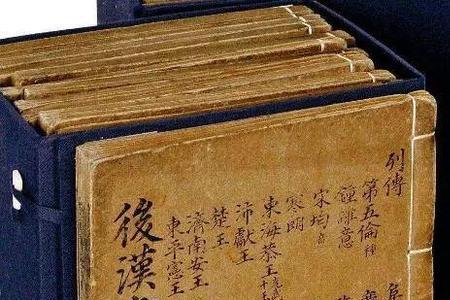 列傳
第五倫種
鍾離意
宋均意
寒朗
東海恭王
沛獻王
楚王
濟南安王
東平憲王
後漢